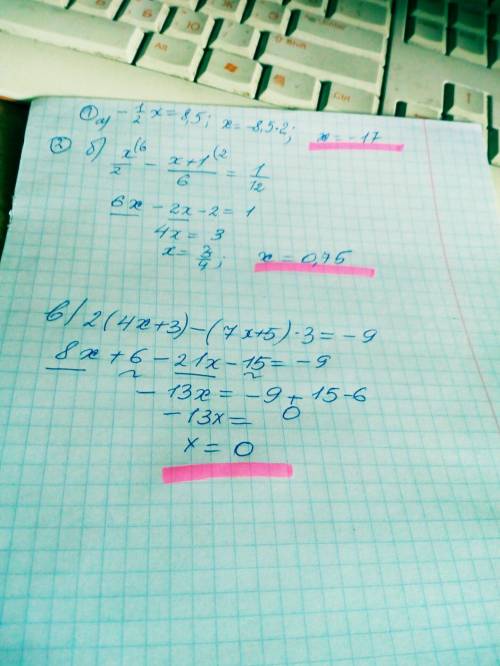 ① а) -1/2 x = 8,5; x = -8,5·2; x = -17
② б) x(6/2 - x+1(2/6 = 1/12
6x - 2x - 2 = 1
4x = 3
x = 3/4; x = 0,75
в/ 2(4x+3)-(7x+5)·3 = -9
8x + 6 - 21x - 15 = -9
-13x = -9 + 15-6
-13x = 0
x = 0
Alt
Ctrl
Shift